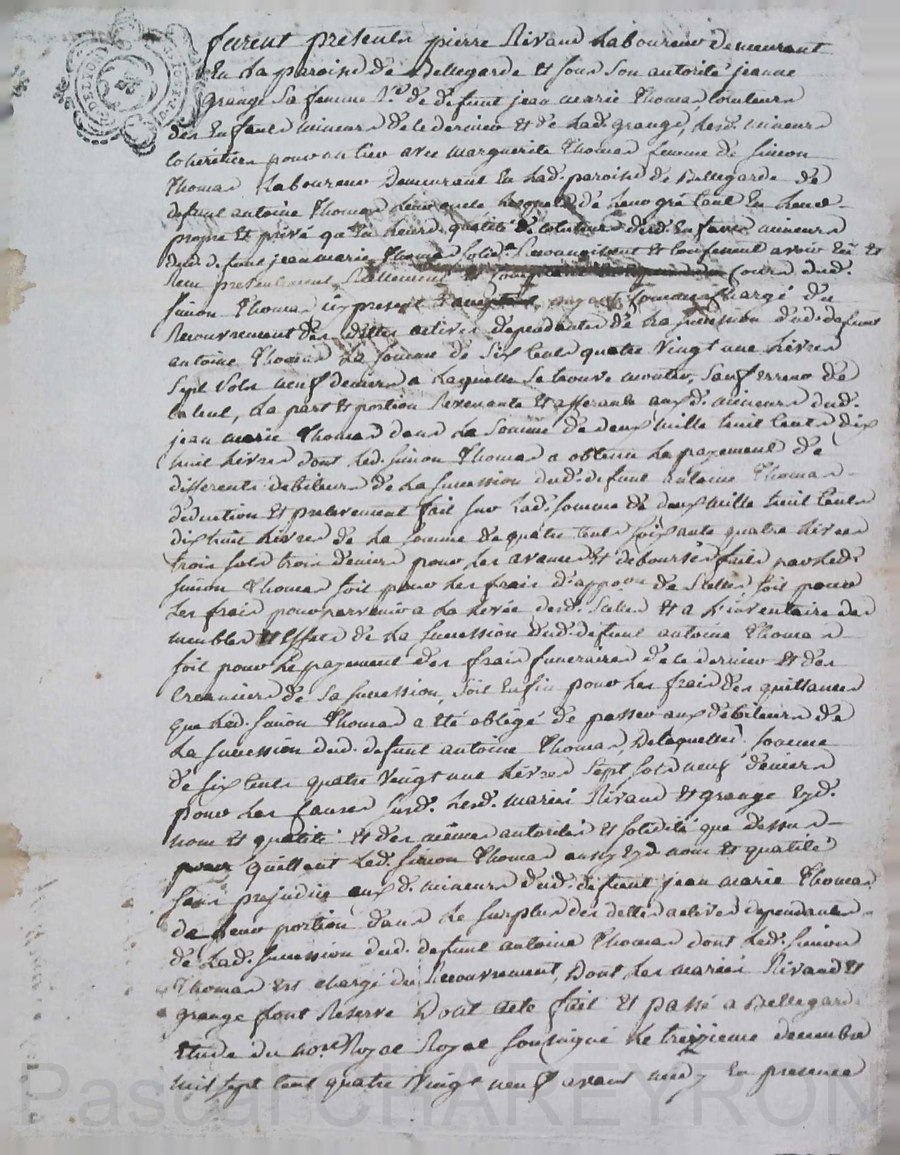 furent présents pierre Rivaud Laboureur demeurant
En La paroisse de Bellegarde et sous Son autorité jeanne
grange Sa femme Vve de défunt jean marie Thomas tuteurs
des Enfans mineurs de ce dernier et de Lad. grange, Lesd. mineurs
cohéritiers pour un tiers avec marguerite Thomas femme de Simon
Thomas Laboureur Demeurant En Lad. paroisse de Bellegarde de
defunt antoine Thomas Leur oncle Lesquels de Leur gré tant En Leurs
propre Et privé qu'En Leurs qualité de cotuteurs desd. Enfans mineurs
dud. defunt jean marie Thomas solid. Reconnoissent et Confessent avoir Eu et
Reçu présentement Réellement et dud.
Simon Thomas ici present Chargé du
Recouvrement des dettes actives dependantes de La succession dud. defunt
antoine Thomas La Somme de Six Cent quatre Vingt une Livres
Sept Sols neuf deniers a Laquelle Se trouve monter, Sauf erreur de
Calcul, La part et portion Revenante et afferante auxd. mineurs dud.
jean marie Thomas dans La Somme de deux mille huit Cent dix
huit Livres dont Led. Simon Thomas a obtenu Le payement de
differents debiteurs de La Succession dud. defunt antoine Thomas
déduction et prelevement fait sur Lad. Somme de deux mille huit Cent
dix huit Livres de La Somme de quatre Cent Soixante quatre Livres
trois Sols trois deniers pour Les avances Et déboursés faits par Led.
Simon Thomas soit pour Les frais d'apposition de Scellés, soit pour
Les frais pour parvenir a La Levée desd. Scellés et a L'inventaire des
meubles Et Effets de La Succession dud. defunt antoine Thomas
soit pour Le payement des frais funeraires de ce dernier et des
Creanciers de Sa succession, Soit Enfin pour Les frais des quittances
que Led. Simon Thomas a été obligé de passer aux débiteurs de
La Succession dud. defunt antoine Thomas, De laquelle Somme
de Six Cent quatre Vingt une Livres Sept Sols neuf deniers
pour Les Causes Susd. Lesd. mariés Rivaud et grange Ezd.
nom Et qualité et des mêmes autorités et solidité que dessus
quittent Led. Simon Thomas aussy Ezd. nom et qualité
Sans prejudice auxd. mineurs dud. defunt jean marie Thomas
de Leur portion dans Le Surplus des dettes actives dependantes
de Lad. Succession dud. defunt antoine Thomas dont Led. Simon
Thomas est chargé du Recouvrement, Dont Les mariés Rivaud Et
grange font Reserve Dont acte fait et passé a Bellegarde
Etude du nore Royal Royal Soussigné Le treizieme decembre
mil sept cent quatre Vingt neuf avant midy En presence
Pascal CHAREYRON